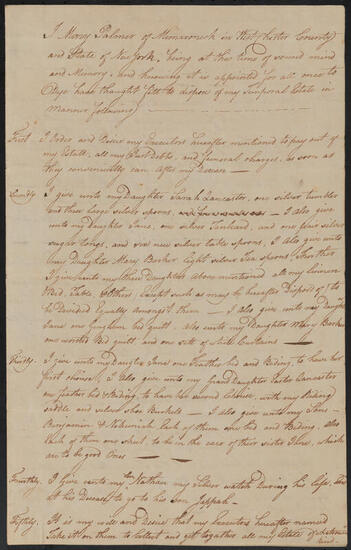 I Mary Palmer of Mamaroneck in West Chester County
and State of New York, being at this time of sound mind
and Memory, and knowing it is appointed for all once to
Dye have thought fitt to dispose of my Temporal Estate in
Manner following
First I Order and Desire my Executors hereafter mentioned to pay out of
my Estate all my Just Debts, and funeral charges, as soon as
they conveniently can After my Decease
Secondly I give unto my Daughter Sarah Lancaster, one silver tumbler
and three large silver spoons, I also give
unto my Daughter Jane, one silver Tankard, and one pear silver
sugar tongs, and new silver table spoons, I also give unto
my Daughter Mary Barker Eight silver Tea spoons, Further
I give unto my three Daughters above mentioned all my Linnen
Bed, Table, & Others Except such as may be hereafter Disposed of, to
be Divided Equally Amongst them I also give unto my Daughter
Jane one Gingham bed quilt Also unto my Daughter Mary Barker
one worsted Bed quilt and one sett of Curtains
Thirdly I give unto my Daughter Jane one Feather bed and Biding, to have her
first choice, I Also give unto my Grand Daughter Lancaster
one feather bed & Biding, to have her second Choice, with my Riding
saddle and silver shoe Buckels I also give unto my Sons
Benjamin & Each of them one bed and Biding. also
Each of them one sheet to be in the care of their sister Jane, which
are to be good Ones
Fourthly I give unto my son Nathan my Silver watch During his life, and
at his Decease to go to his son
Fifthly It is my will and Desire that my Executors hereafter named
Take it on them to Collect and get together all my Estate of
kind